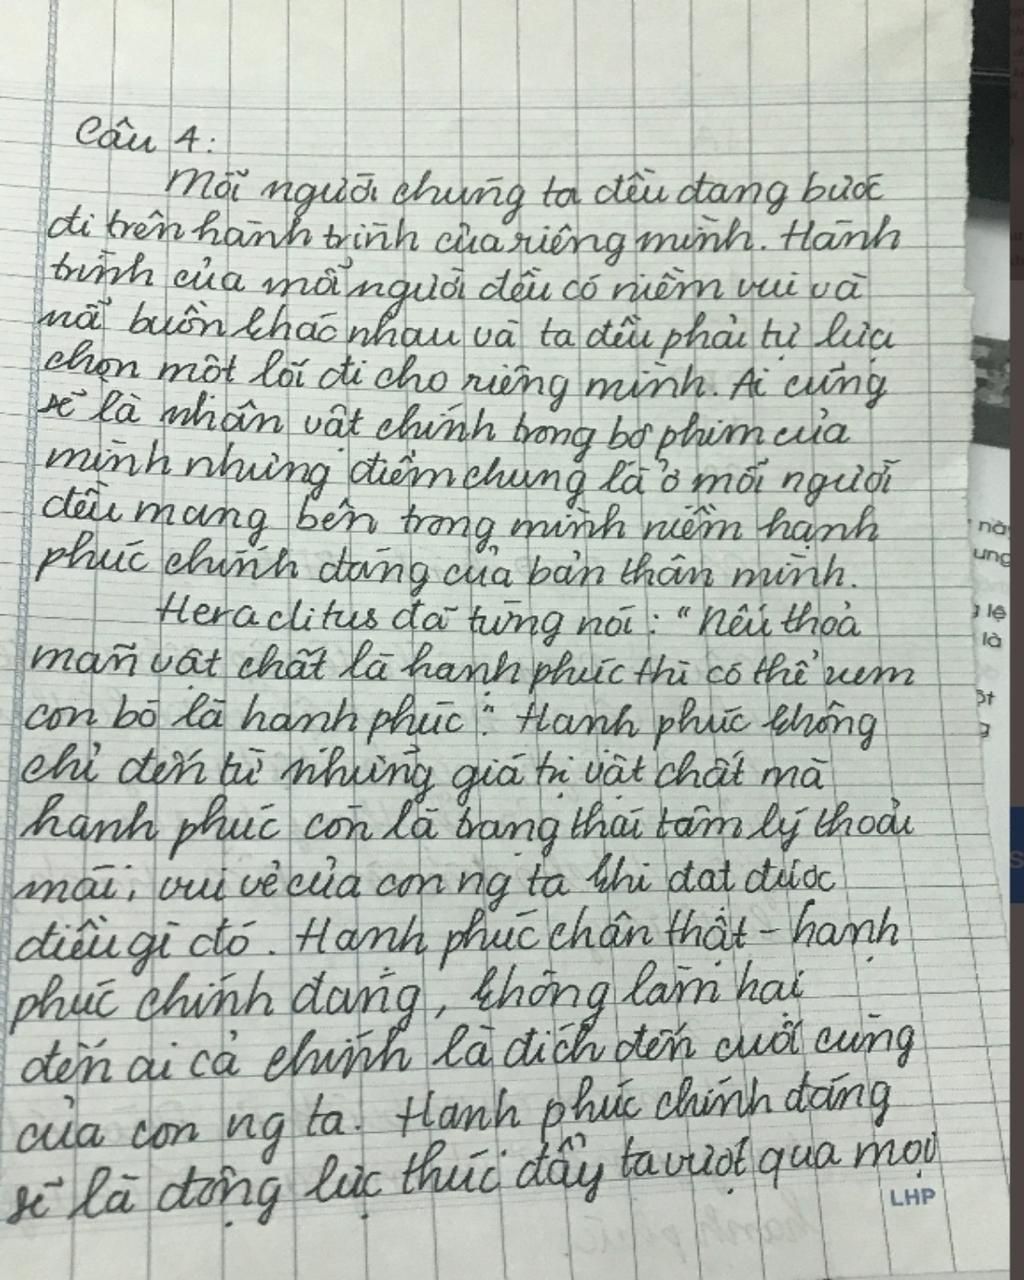 Câu 4:
Mỗi người chúng ta đều đang bước
đi trên hành trình của riêng mình. Hành
trình của mỗi người đều có niềm vui và
nỗi buồn khác nhau và ta đều phải tự lựa
chọn một lối đi cho riêng mình. Ai cũng
sẽ là nhân vật chính trong bộ phim của
mình nhưng điểm chung là ở mỗi người
đều mang bên trong mình niềm hạnh
phúc chính đáng của bản thân mình.
Heraclitus đã từng nói: "Nếu thoả
mãn vật chất là hạnh phúc thì có thể xem
con bò là hạnh phúc". Hạnh phúc không
chỉ đến từ những giá trị vật chất mà
hạnh phúc còn là trạng thái tâm lý thoải
mái, vui vẻ của con ng ta khi đạt được
điều gì đó. Hạnh phúc chân thật - hạnh
phúc chính đáng, không làm hại
đến ai cả chính là đích đến cuối cùng
của con ng ta. Hạnh phúc chính đáng
sẽ là động lực thúc đẩy ta vượt qua mọi
LHP
nà
ung
lệ
là